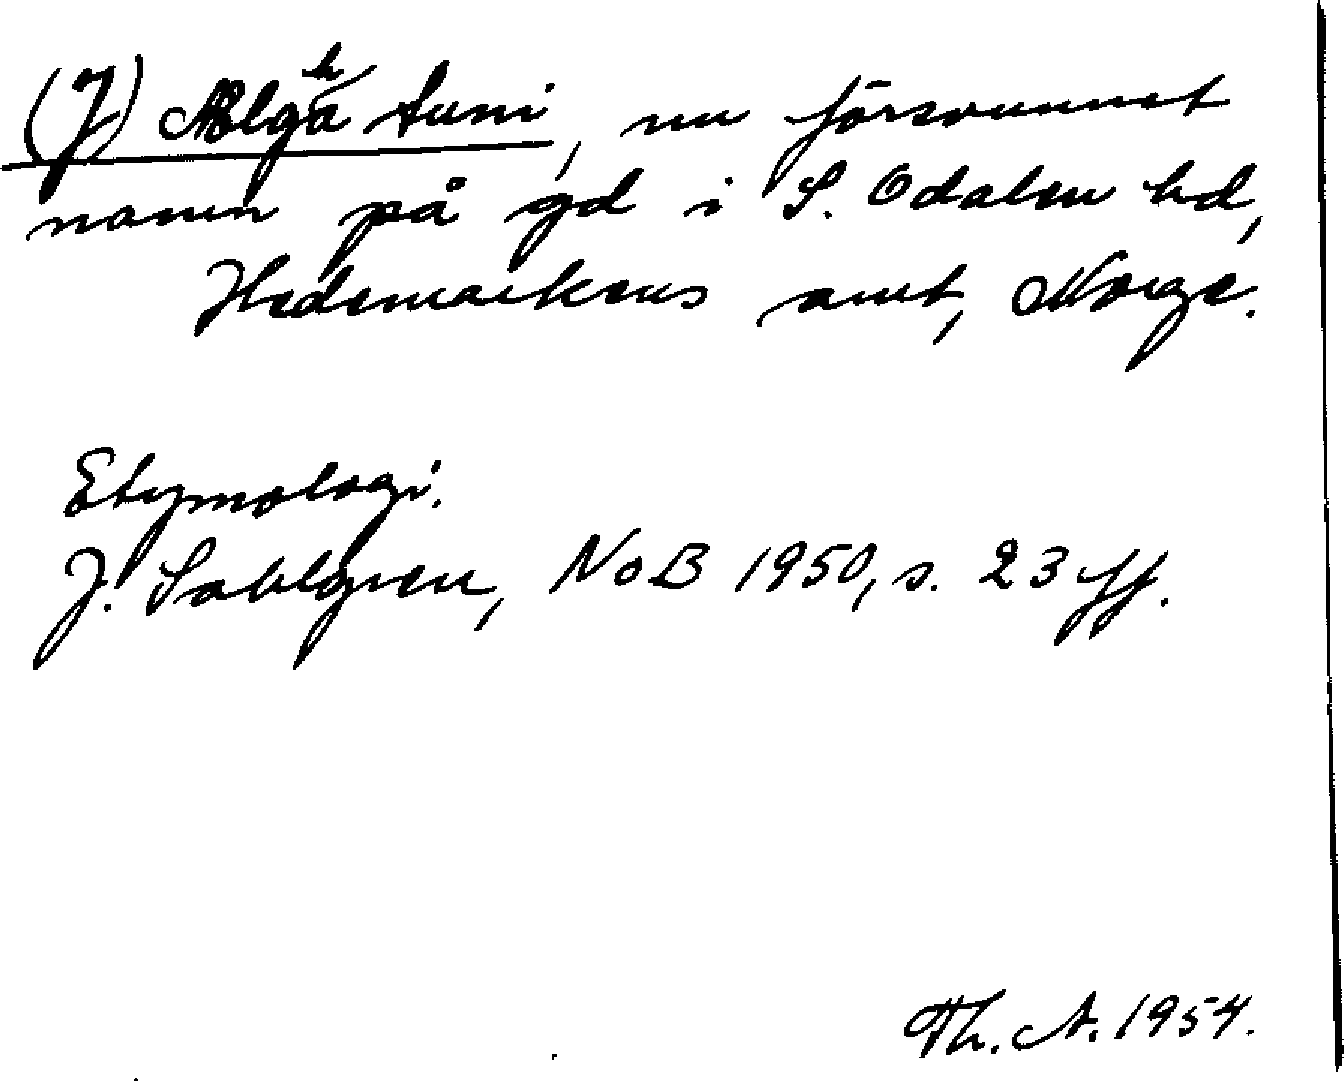 (J) Ælghatuni, nu försvunnet
namn på gd i S. Odalen hd,
Hedemarkens amt, Norge.
Etymologi.
J. Sahlgren, NoB 1950, s. 23 ff.
Th. A. 1954.